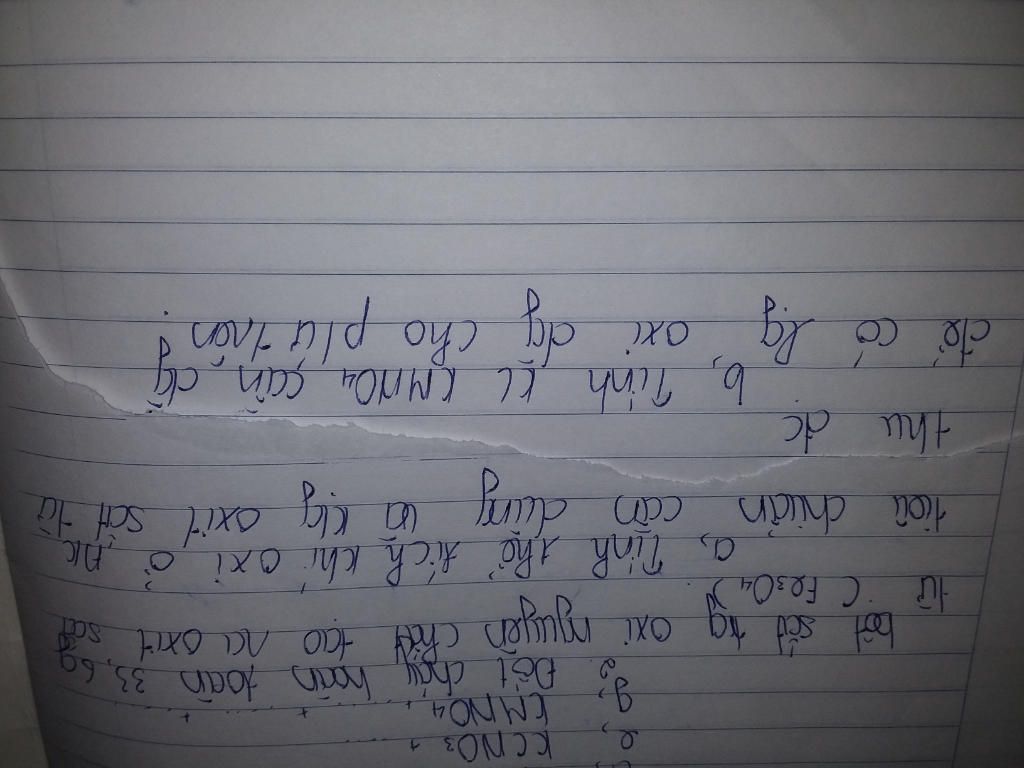 e, KCNO3, .......
g, KMNO4 .......
2, Đốt cháy hoàn toàn 33,6g
bột sắt tg oxi nguyên chất tạo ra oxit sắt
từ (Fe3O4)
a, Tính thể tích khí oxi ở đk
tiêu chuẩn cần dùng và klg oxit sắt từ
thu đc
b, Tính KL KMNO4 cần dg
để có lg oxi dg cho pứ trên?